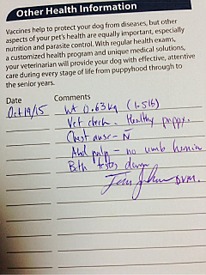 Other Health Information
Vaccines help to protect your dog from diseases, but other
aspects of your pet's health are equally important, especially
nutrition and parasite control. With regular health exams,
a customized health program and unique medical solutions,
your veterinarian will provide your dog with effective, attentive
care during every stage of life from puppyhood through to
the senior years.
Date Comments
Oct 19/15 Wt 0.63kg (1.5lb)
Vet check - Healthy puppy.
Chest ausc - N
Abd palp - no umb hernia
Both testes down
DVM.